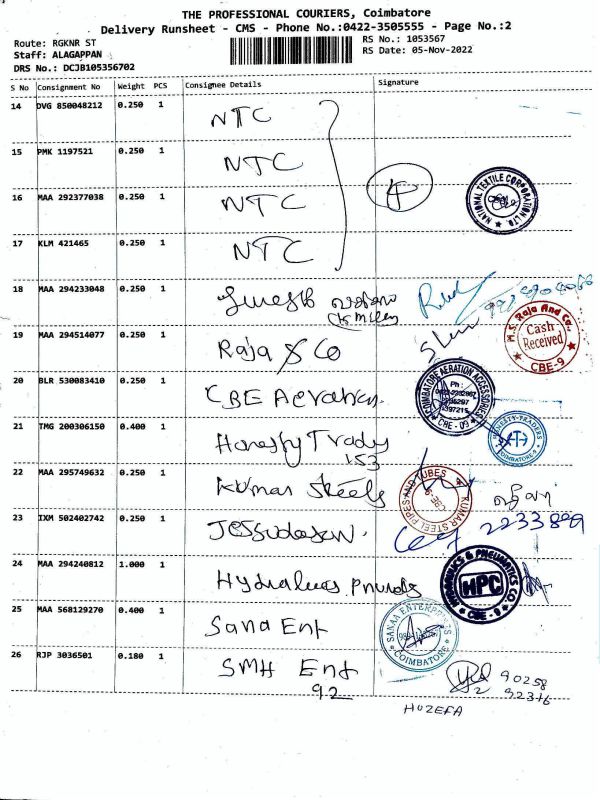 THE PROFESSIONAL COURIERS, Coimbatore
Delivery Runsheet - CMS - Phone No.:0422-3505555 - Page No.:2
Route: RGKNR ST
RS No.: 1053567
Staff: ALAGAPPAN
RS Date: 05-Nov-2022
DRS No.: DCJB105356702
S No Consignment No Weight PCS Consignee Details Signature
14 DVG 850048212 0.250 1 NTC
15 PMK 1197521 0.250 1 NTC
16 MAA 292377038 0.250 1 NTC
NATIONAL TEXTILE CORPORATION LTD.
17 KLM 421465 0.250 1 NTC
18 MAA 294233048 0.250 1
19 MAA 294514077 0.250 1 Raja & Co
M.S. Raja And Co.
Cash
Received
CBE-9
20 BLR 530083410 0.250 1 CBE Aeration
COIMBATORE AERATION ACCESSORIES
Ph :
CBE - 09
21 TMG 200306150 0.400 1 Honesty Trades
153
HONESTY TRADERS
COIMBATORE-9
22 MAA 295749632 0.250 1 Kumar Steels
KUMAR STEEL PIPES AND TUBES
CBE-9
23 IXM 502402742 0.250 1 Jessudasan.
2233899
24 MAA 294240812 1.000 1
HYDRAULICS & PNEUMATICS CO.
HPC
CBE - 9
25 MAA 568129270 0.400 1 Sana Ent
SANAA ENTERPRISES
COIMBATORE
26 RJP 3036501 0.180 1 SMH Ent
92
90258
92316
HUZEFA